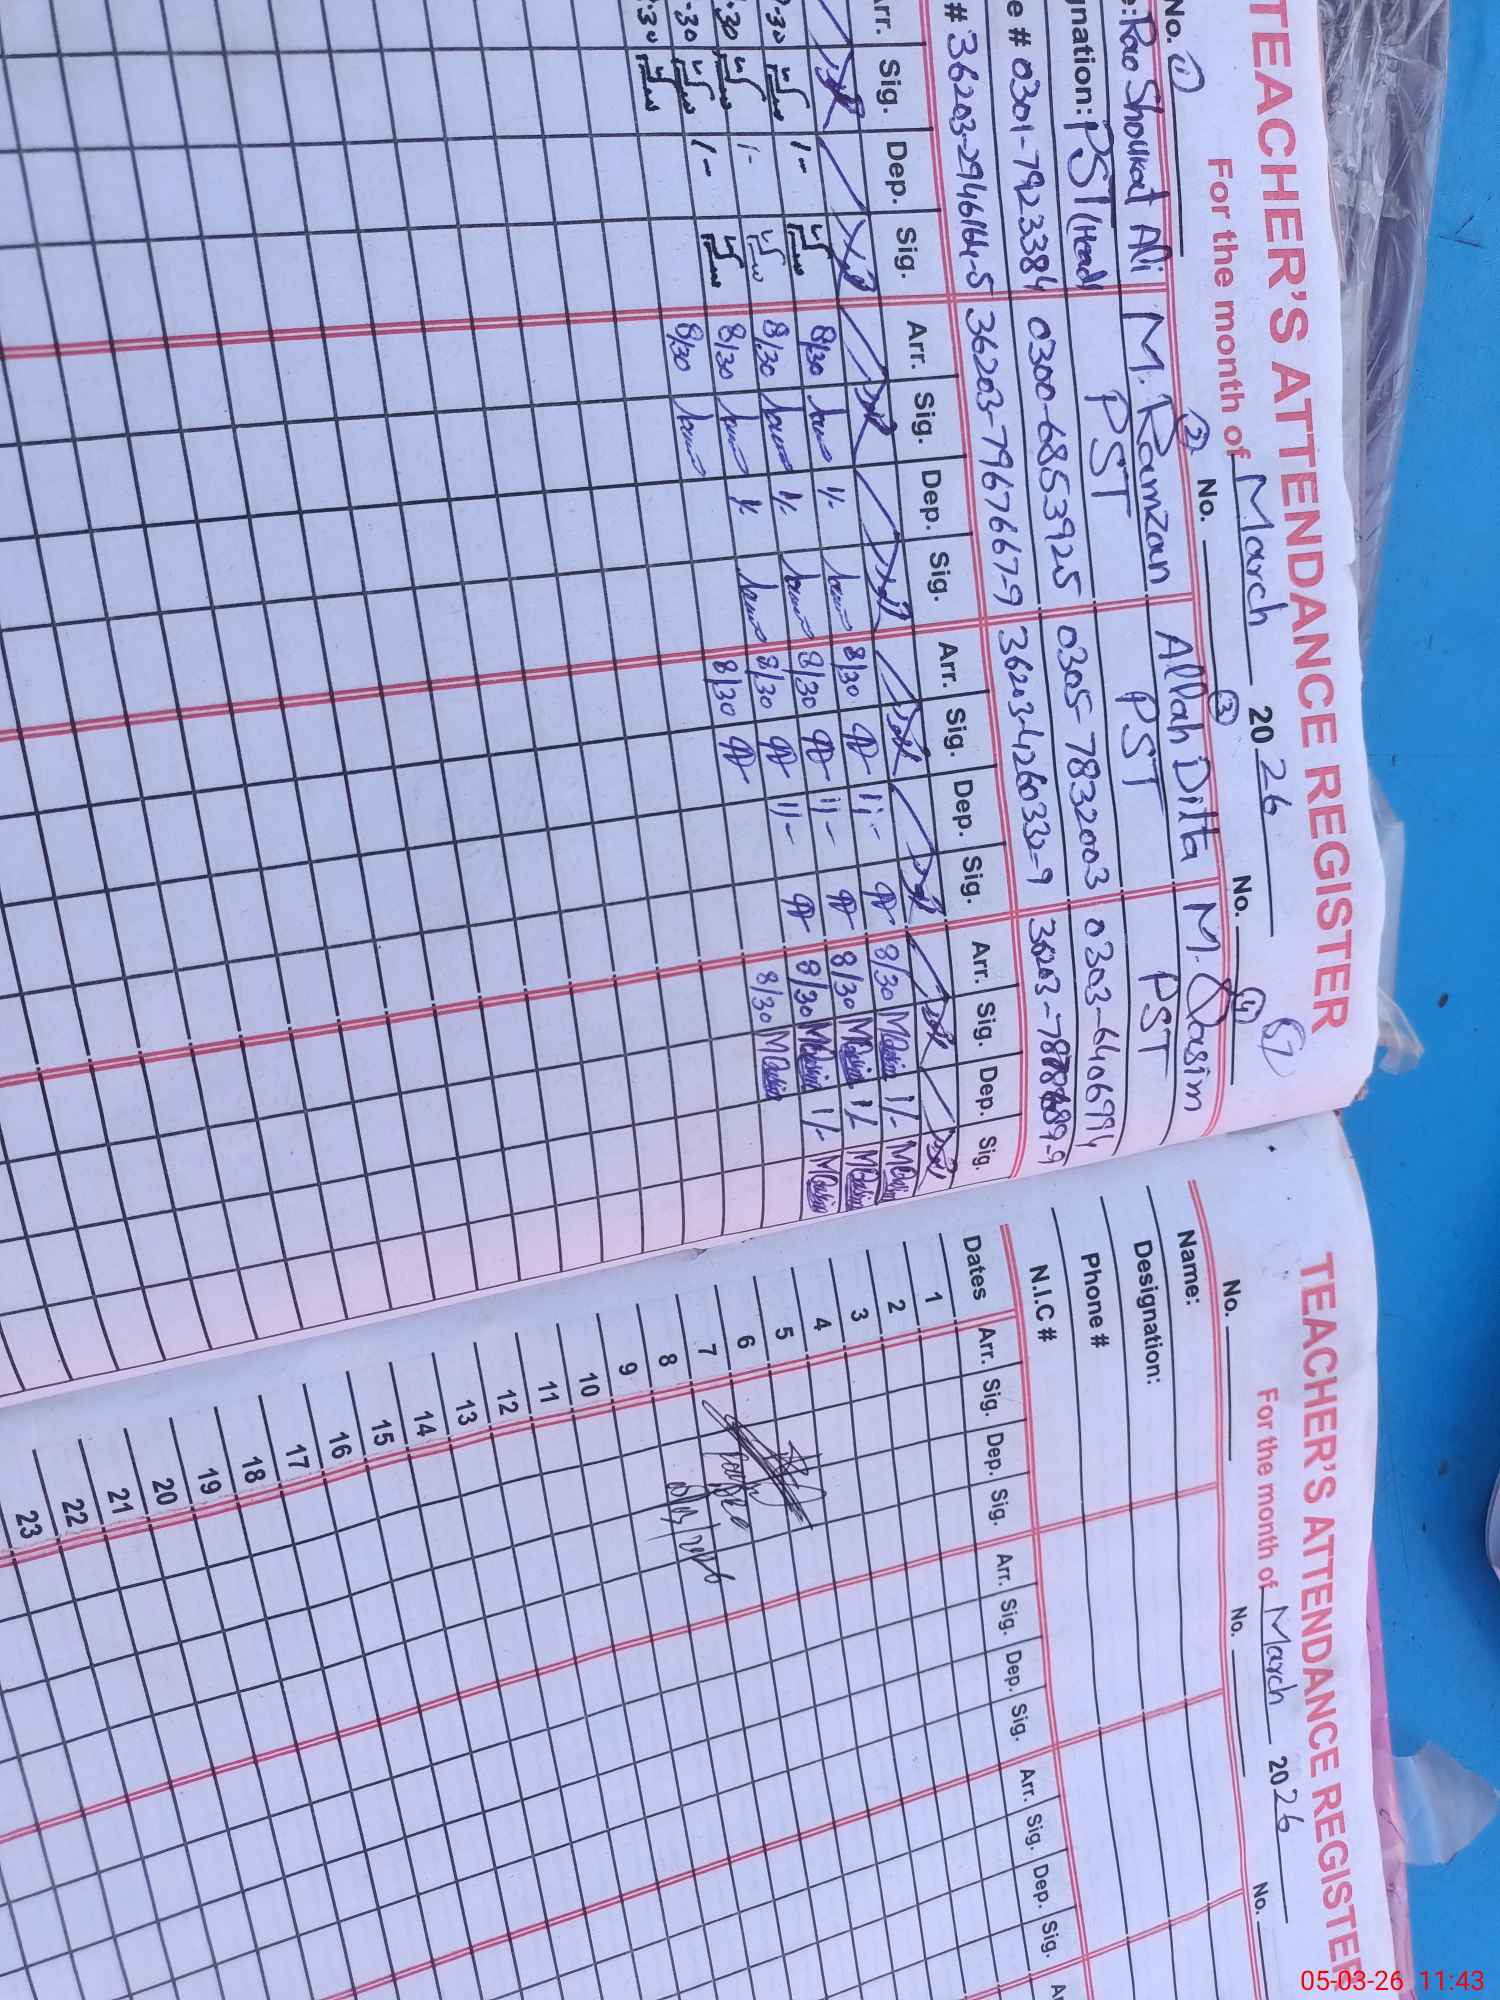 TEACHER'S ATTENDANCE REGISTER
For the month of March 2026
No. 1 No. 2 No. 3 No. 4
Rao Shoukat Ali M. Ramzan Allah Ditta M. Qasim
gnation: PST (Head) PST PST PST
e # 0301-7923384 0300-6853925 0305-7832003 0303-6406994
# 36203-2946164-5 36203-7967667-9 36203-4260333-9
Arr. Sig. Dep. Sig. Arr. Sig. Dep. Sig. Arr. Sig. Dep. Sig. Arr. Sig. Dep. Sig.
8/30 1/- 8/30 11/- 8/30 MQasim 1/- MQasim
8/30 1/- 8/30 11/- 8/30 MQasim 1/- MQasim
8/30 1/- 8/30 11/- 8/30 MQasim 1/- MQasim
8/30 8/30 8/30 MQasim
TEACHER'S ATTENDANCE REGISTER
For the month of March 2026
No. No. No.
Name:
Designation:
Phone #
N.I.C #
Dates Arr. Sig. Dep. Sig. Arr. Sig. Dep. Sig. Arr. Sig. Dep. Sig.
1
2
3
4
5
6
7
8
9
10
11
12
13
14
15
16
17
18
19
20
21
22
23
05-03-26 11:43